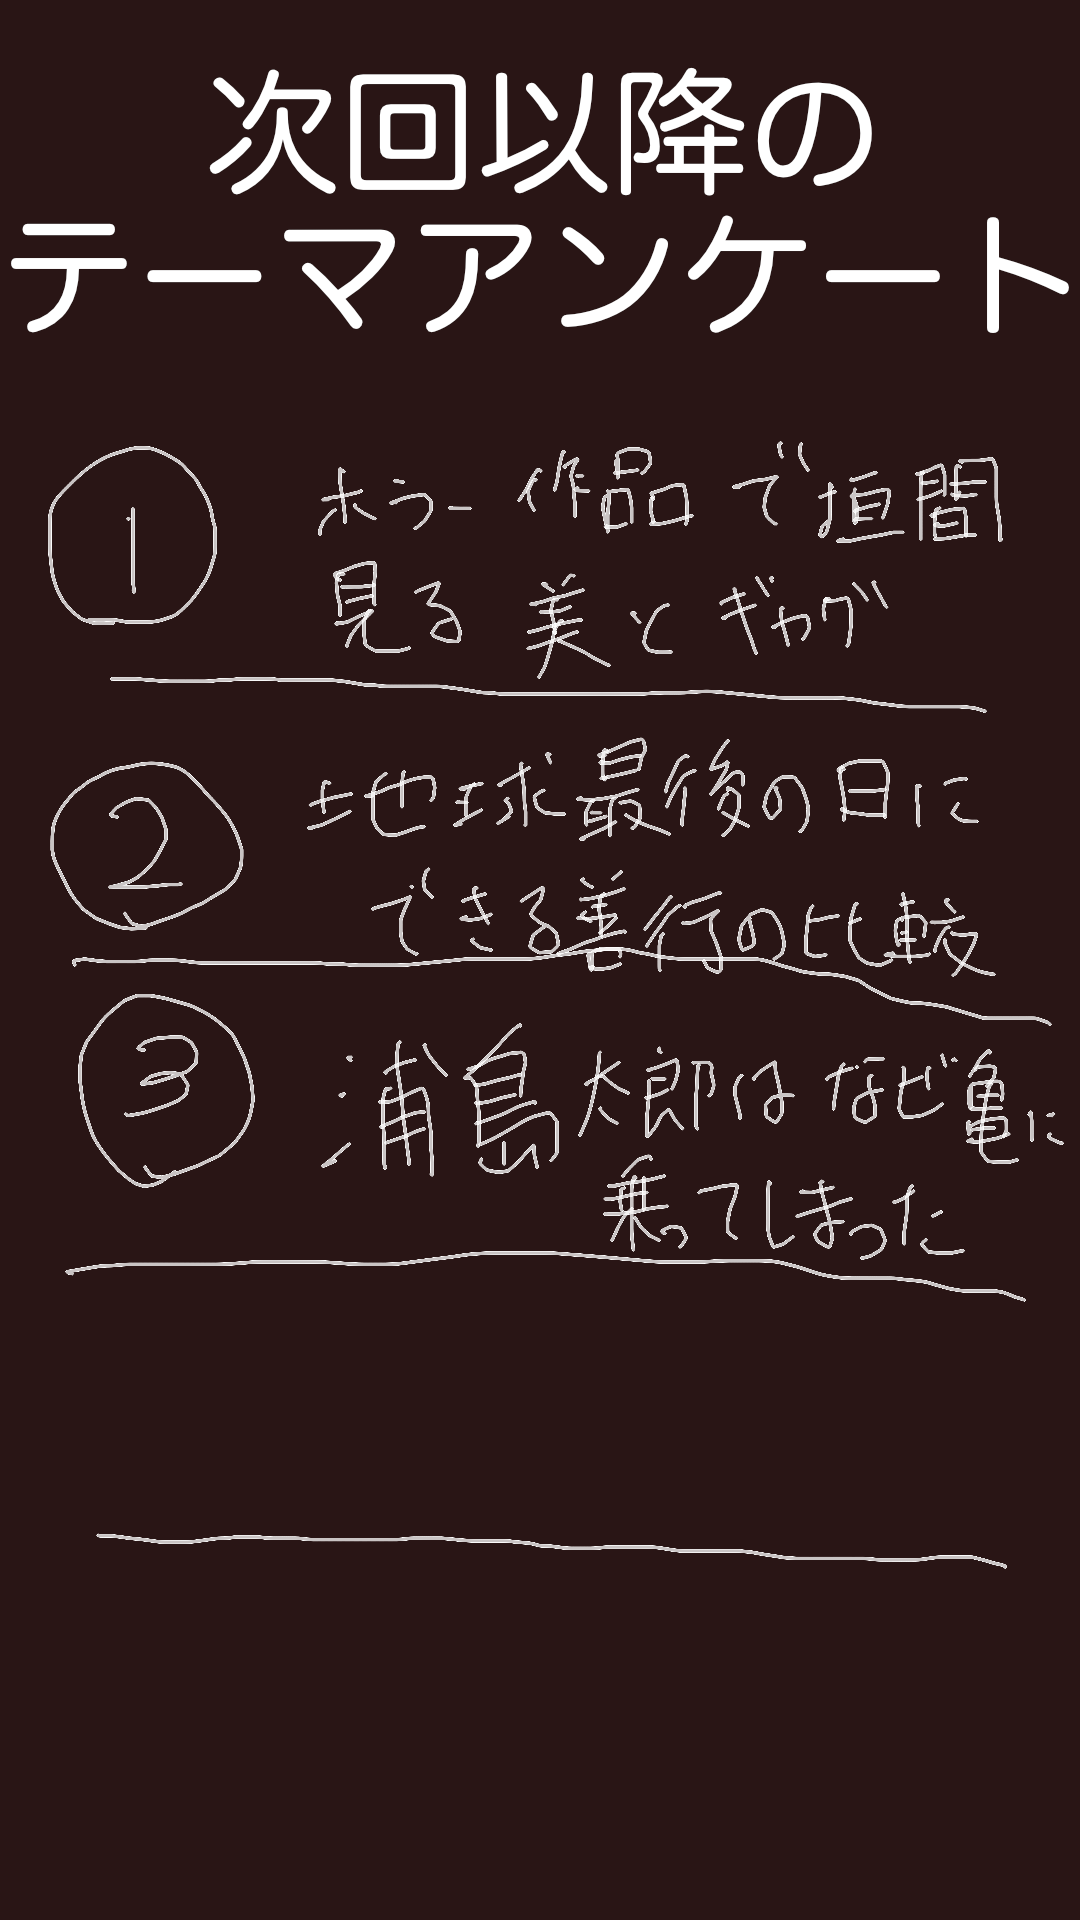 次回以降の
テーマアンケート
① ホラー作品で垣間
見る美とギャグ
② 地球最後の日に
できる善行の比較
③ 浦島太郎はなぜ亀に
乗ってしまった